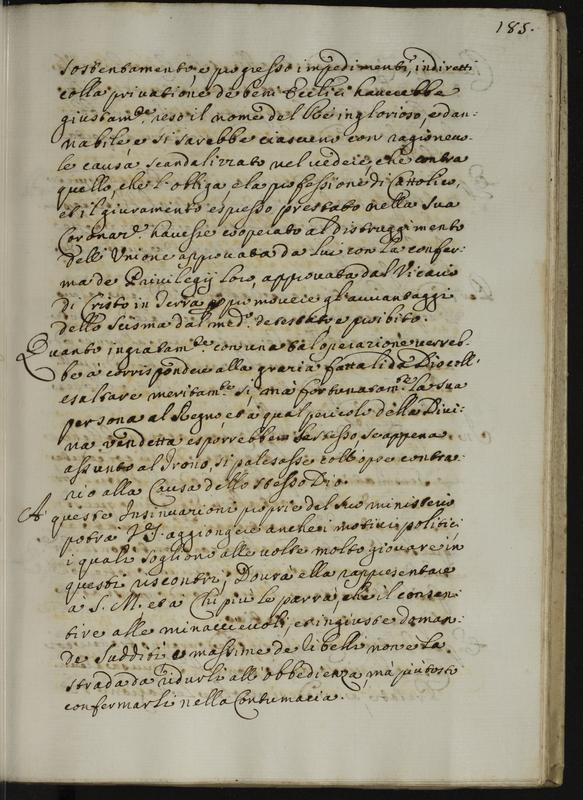 185.
sostentamento, e progresso impedimenti, indiretti
colla privatione de beni Ecclici haverebbe
giustamte. reso il nome del Rè inglorioso, e dan:
nabile e si sarebbe ciascuno con ragionevo-
le causa scandalizzato nel vedere, che contra
quello, che l'obliga e la professione di Cattolico,
et il giuramento espresso prestato nella sua
Coronane. havesse cooperato al distruggimento
dell'Unione approvata da lui con la confer:
ma de Privilegij loro, approvata dal Vicario
di Cristo in Terra, e promovere gl'avvantaggi
dello Scisma dal medo. detestato e proibito.
Quanto ingratamte. con una tal operatione verreb-
be a corrispondere alla gratia fattali da Dio coll'
esaltare meritamte. si, mà fortunatamte. la sua
persona al Regno et a qual pericolo della Divi:
na vendetta esporrebbe se stesso, se appena
assunto al Trono, si palesasse coll'opre contra:
rio alla Causa dello stesso Dio.
A queste Insinuationi proprie del suo ministerio
potrà V.S. aggiongere anche i motivi politici
i quali sogliono alle volte molto giovare in
questi riscontri; Dovrà ella rappresentare
a S. M. et a Chi più le parrà, che il consen:
tire alle minaccievoli, et ingiuste doman:
de Sudditi e massime de ribelli non è la
strada da ridurli all'obbedienza, mà più tosto
confermarli nella Contumacia.